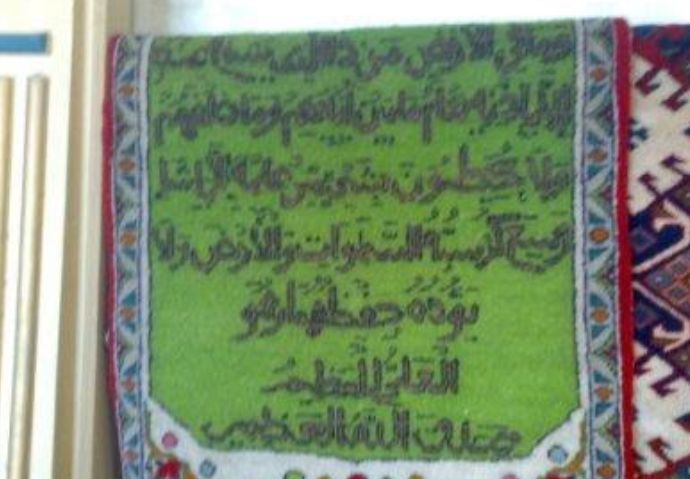 وما في الأرض من ذا الذي يشفع عنده
إلا بإذنه يعلم ما بين أيديهم وما خلفهم
ولا يحيطون بشيء من علمه إلا بما شاء
وسع كرسيه السموات والأرض ولا
يؤده حفظهما وهو
العلي العظيم
صدق الله العظيم